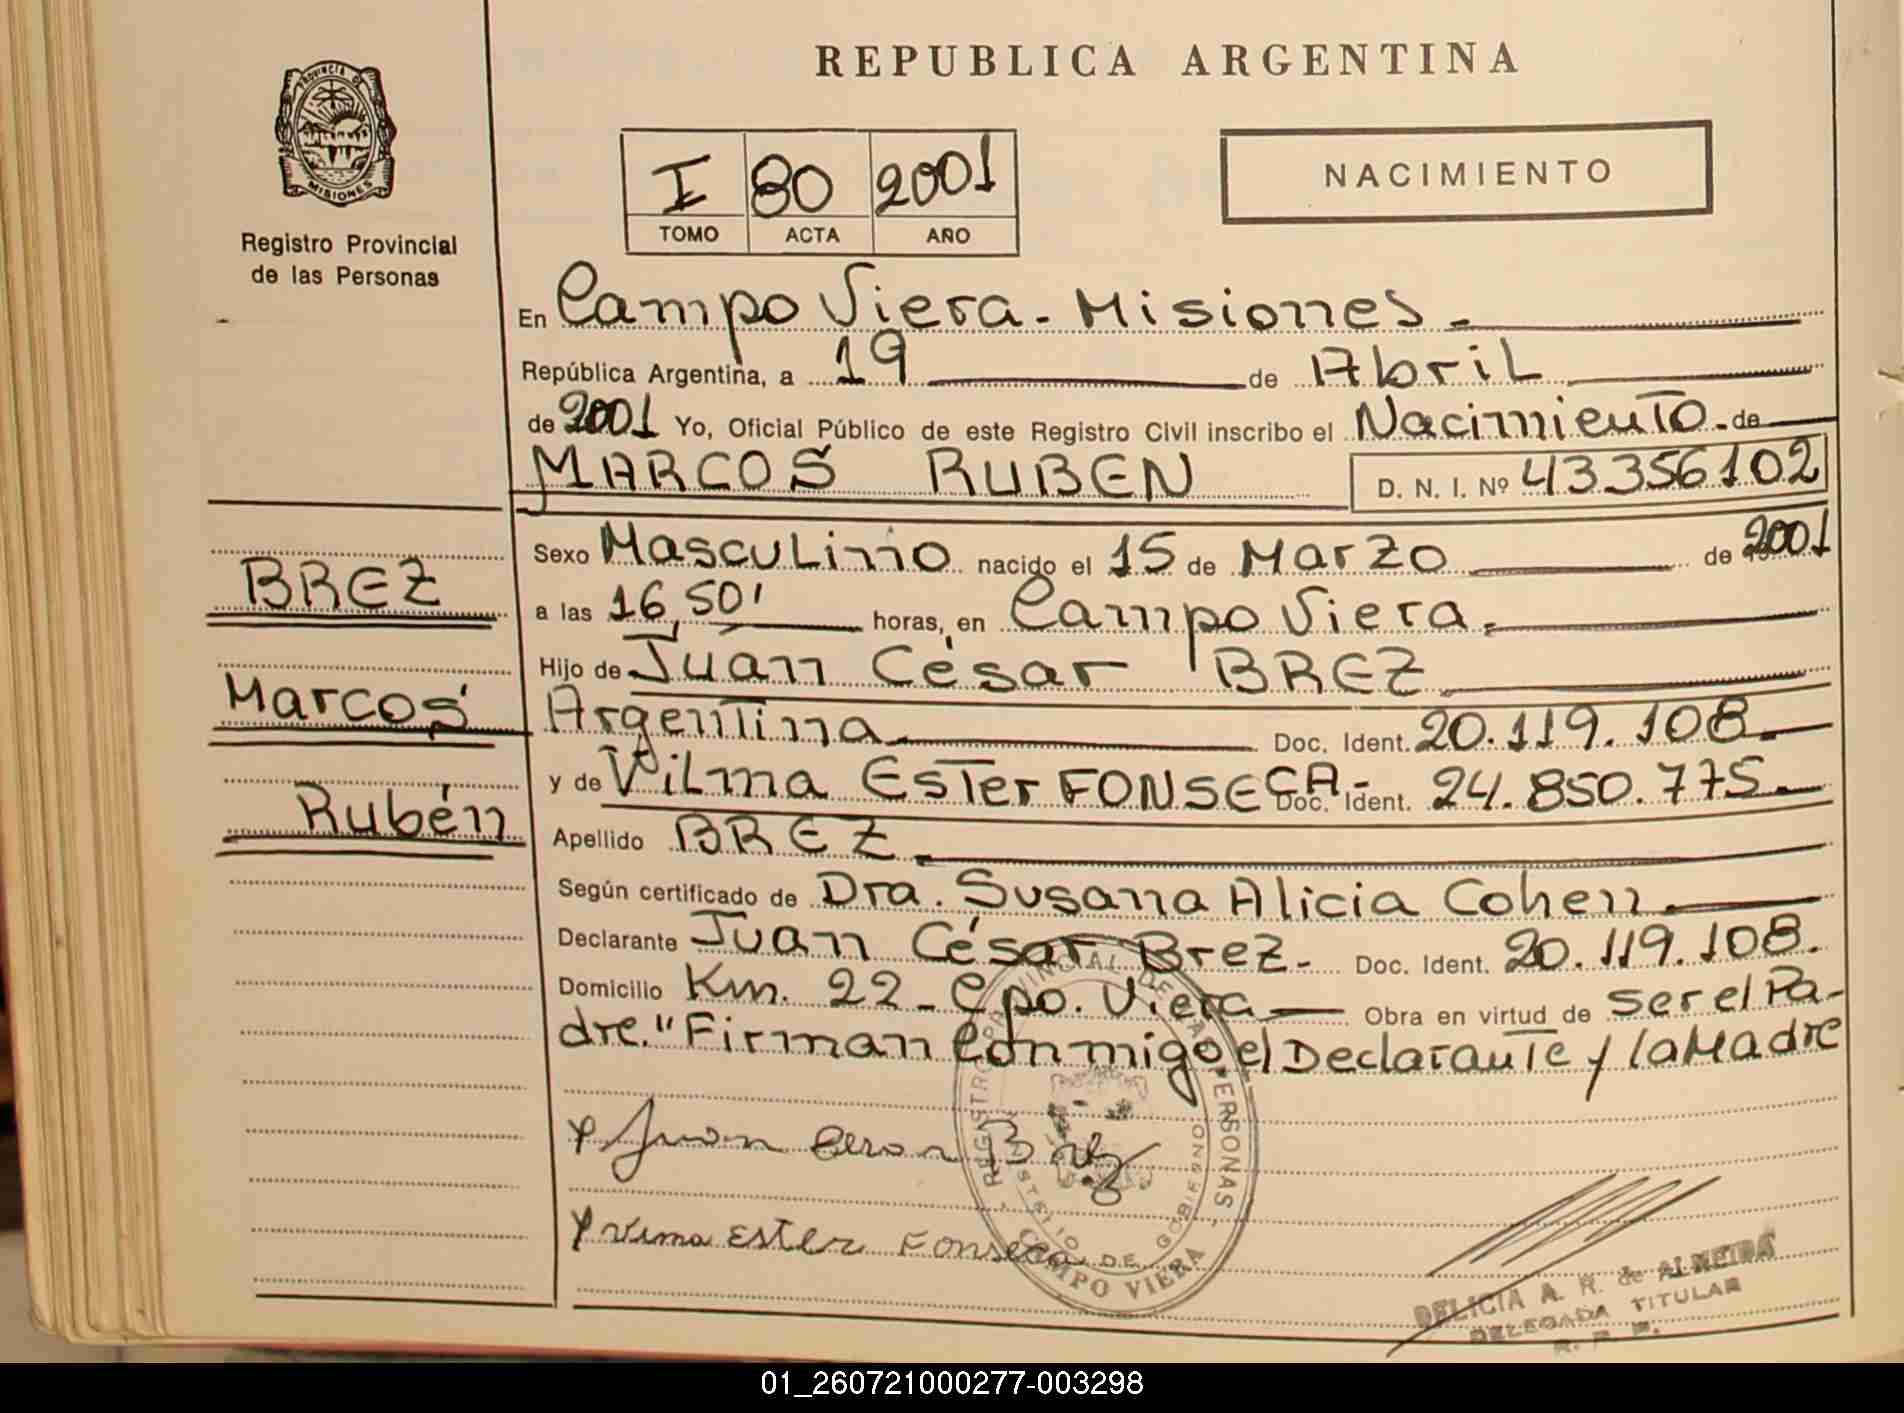 REPUBLICA ARGENTINA
PROVINCIA D
MISIONES
Registro Provincial
de las Personas
I 80 2001
TOMO ACTA AÑO
NACIMIENTO
En Campo Viera - Misiones -
República Argentina, a 19 de Abril
de 2001 Yo, Oficial Público de este Registro Civil inscribo el Nacimiento - de
MARCOS RUBEN D. N. I. Nº 43356102
BREZ
Marcos
Rubén
Sexo Masculino nacido el 15 de Marzo de 2001
a las 16,50' horas, en Campo Viera.
Hijo de Juan César BREZ
Argentina Doc. Ident. 20.119.108.
y de Vilma Ester FONSECA - Doc. Ident. 24.850.775.
Apellido BREZ.
Según certificado de Dra. Susana Alicia Cohen.
Declarante Juan César Brez - Doc. Ident. 20.119.108.
Domicilio Km. 22 - Cpo. Viera Obra en virtud de ser el Pa-
dre." Firman Conmigo el Declarante y la Madre
Juan Cesar Brez
Vima Ester Fonseca
REGISTRO PROVINCIAL DE LAS PERSONAS
MINISTERIO DE GOBIERNO
CAMPO VIERA
DELICIA A. R. de ALMEIDA
DELEGADA TITULAR
R. P. P.
01_260721000277-003298